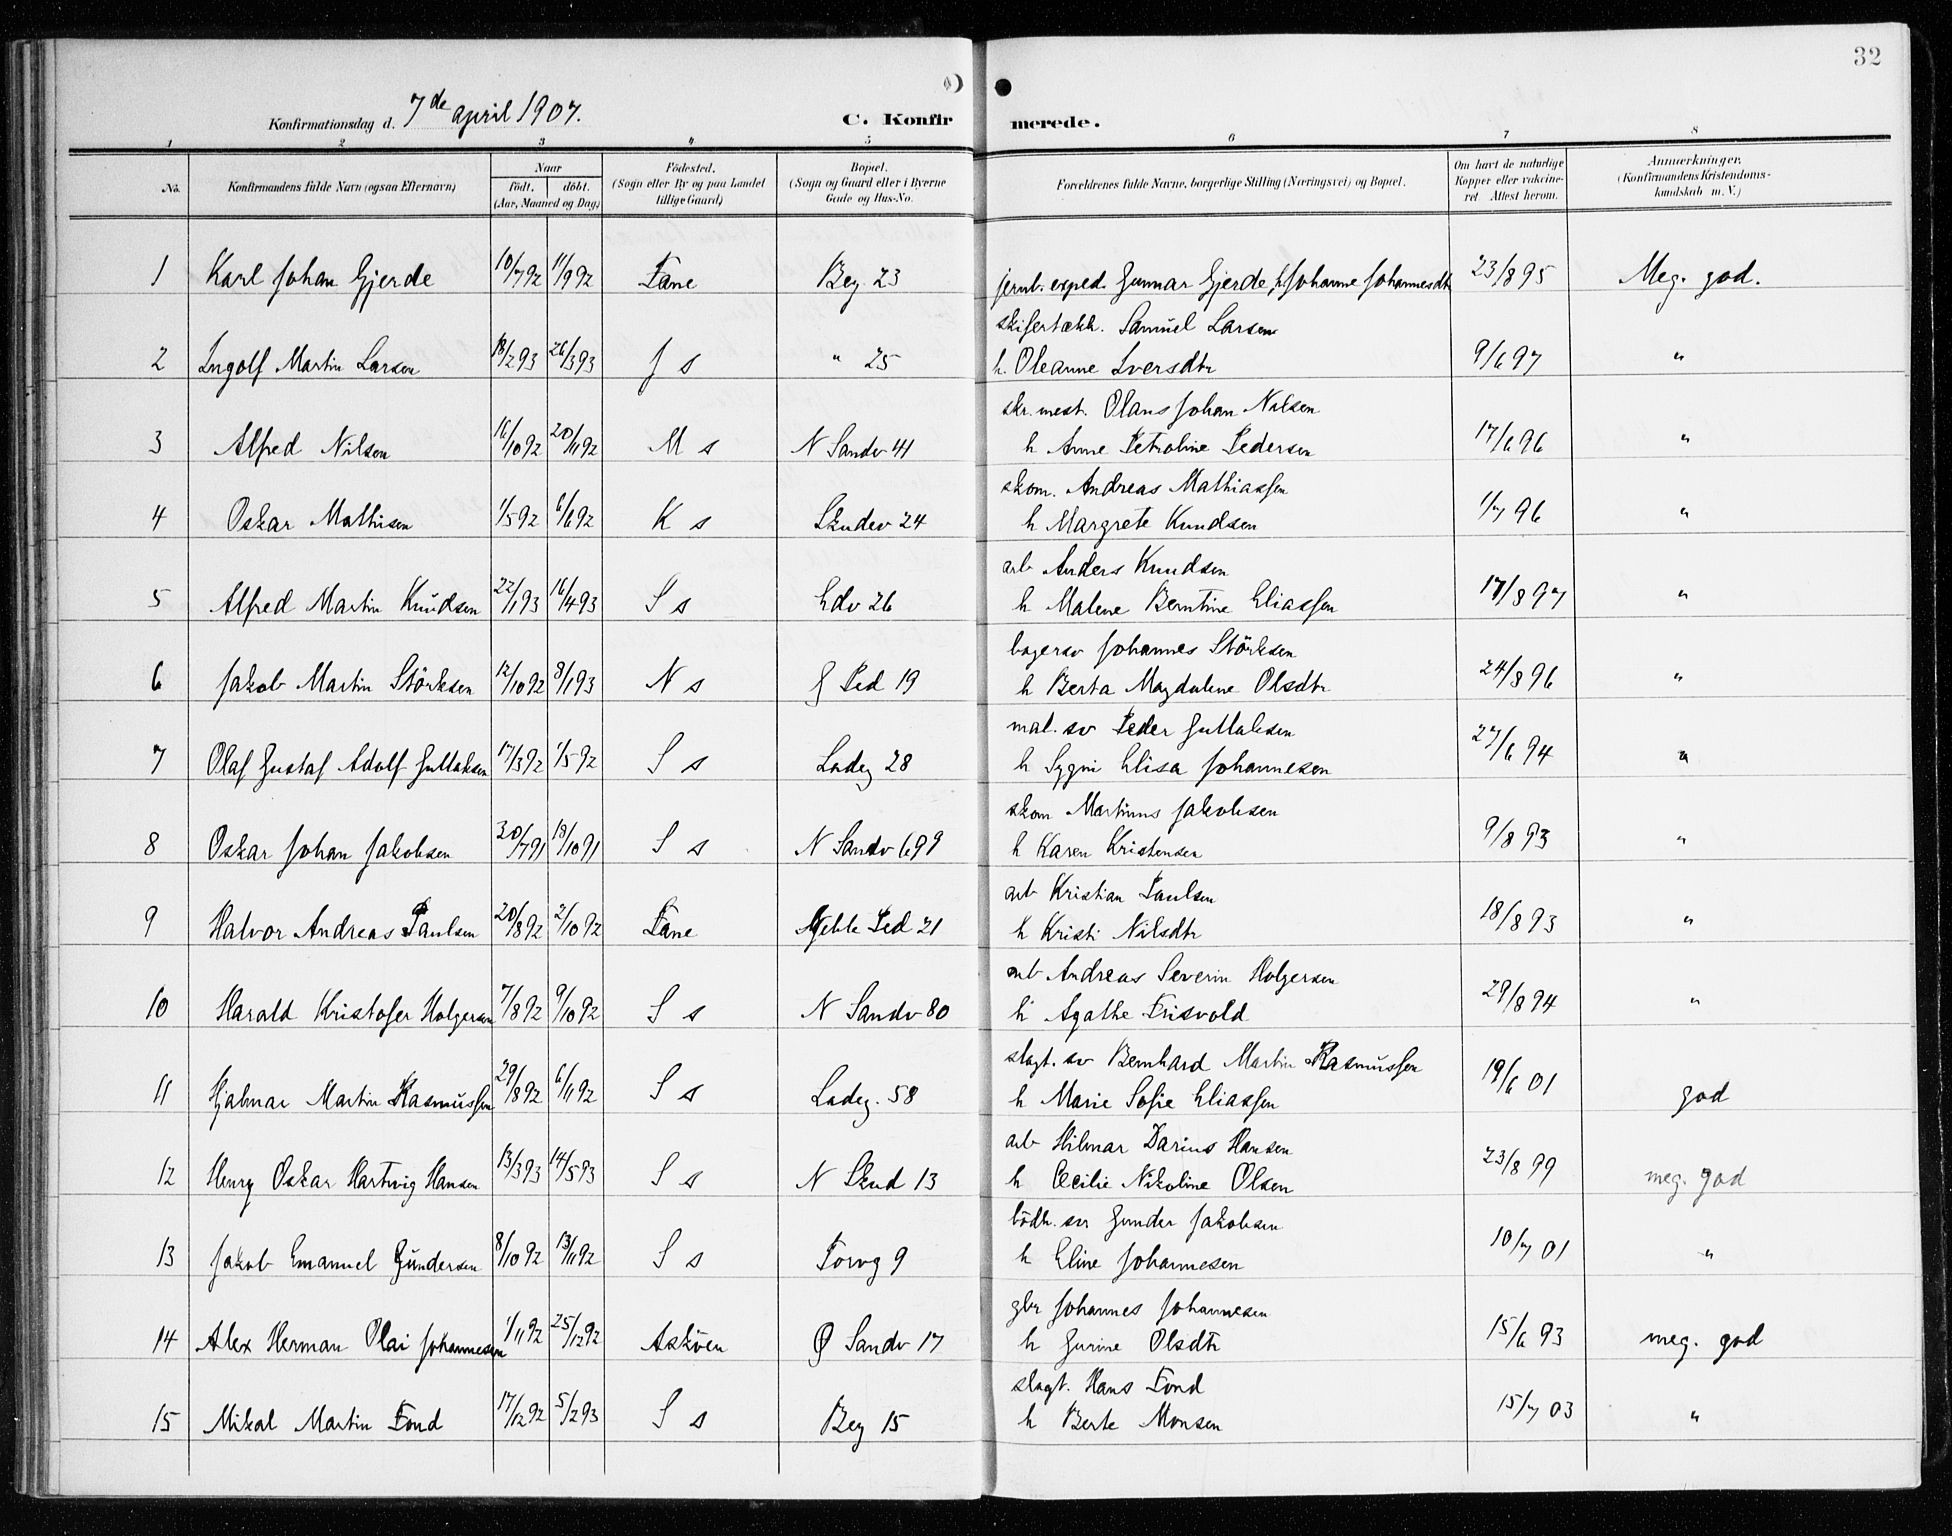 32
Konfirmationsdag d. 7de april 1907.
C. Konfirmerede.
1 2 3 4 5 6 7 8
No. Konfirmandens fulde Navn (ogsaa Efternavn) Naar født. døbt. (Aar, Maaned og Dag) Fødested. (Sogn eller By og paa Landet tillige Gaard) Bopæl. (Sogn og Gaard eller i Byerne Gade og Hus-No. Forældrenes fulde Navne, borgerlige Stilling (Næringsvei) og Bopæl. Om havt de naturlige Kopper eller vakcineret Attest herom. Anmærkninger. (Konfirmandens Kristendomskundskab m. V.)
1 Karl Johan Gjerde 10/7 92 11/9 92 Fane Beg. 23 jernb. exped. Gunnar Gjerde, h. Johanne Johannesdtr 23/8 95 Meg. god.
skifertækk. Samuel Larsen
2 Ingolf Martin Larsen 18/2 93 26/3 93 J s " 25 h. Oleanne Iversdtr 9/6 97 "
skr. mest. Olaus Johan Nilsen
3 Alfred Nilsen 16/10 92 20/11 92 M s N Sandv 41 h Anne Petroline Pedersen 17/6 96 "
skom. Andreas Mathiassen
4 Oskar Mathisen 1/5 92 6/6 92 K s Skudev 24 h Margrete Knudsen 1/7 96 "
arb Anders Knudsen
5 Alfred Martin Knudsen 22/1 93 16/4 93 S s Edv 26 h Malene Berntine Eliassen 17/8 97 "
bagersv Johannes Störksen
6 Jakob Martin Störksen 12/10 92 8/1 93 N s G Sed 19 h Berta Magdalene Olsdtr 24/8 96 "
mal. sv Peder Gullaksen
7 Olaf Gustaf Adolf Gullaksen 17/3 92 1/5 92 S s Ladeg 28 h Sygni Elisa Johannesen 27/6 94 "
skom Martinus Jakobsen
8 Oskar Johan Jakobsen 30/7 91 18/10 91 S s N Sandv 69 h Karen Kristensen 9/8 93 "
arb Kristian Paulsen
9 Halvor Andreas Paulsen 20/8 92 2/10 92 Fane 21 h Kristi Nilsdtr 18/8 93 "
arb Andreas Severin Holgersen
10 Harald Kristofer Holgersen 7/8 92 9/10 92 S s N Sandv 80 h Agathe Frisvold 29/8 94 "
slagt. sv Bernhard Martin Rasmussen
11 Hjalmar Martin Rasmussen 29/8 92 6/11 92 S s Ladeg. 58 h Marie Sofie Eliassen 19/6 01 god
arb Hilmar Darius Hansen
12 Henry Oskar Hartvig Hansen 13/3 93 14/5 93 S s N Skud 13 h Cecilie Nikoline Olsen 23/8 99 meg. god
bödk. sv Gunder Jakobsen
13 Jakob Emanuel Gundersen 8/10 92 13/11 92 S s Torvg 9 h Eline Johannesen 10/7 01 "
gbr Johannes Johannesen
14 Alex Herman Olai Johannesen 1/11 92 25/12 92 Asköen Ø Sandv 17 h Gurine Olsdtr 15/6 93 meg. god
slagt. Hans Fond
15 Mikal Martin Fond 17/12 92 5/2 93 S s Beg 15 h Berte Monsen 15/7 03 "